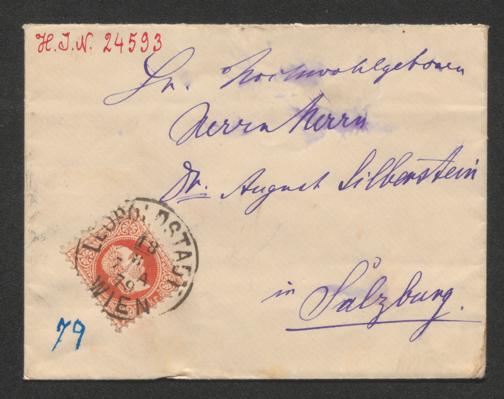 H. I. N. 24593
Sr. Hochwohlgeboren
Herrn Herrn
Dr. August Silberstein
in Salzburg.
LEOPOLDSTADT
WIEN
18
79
79